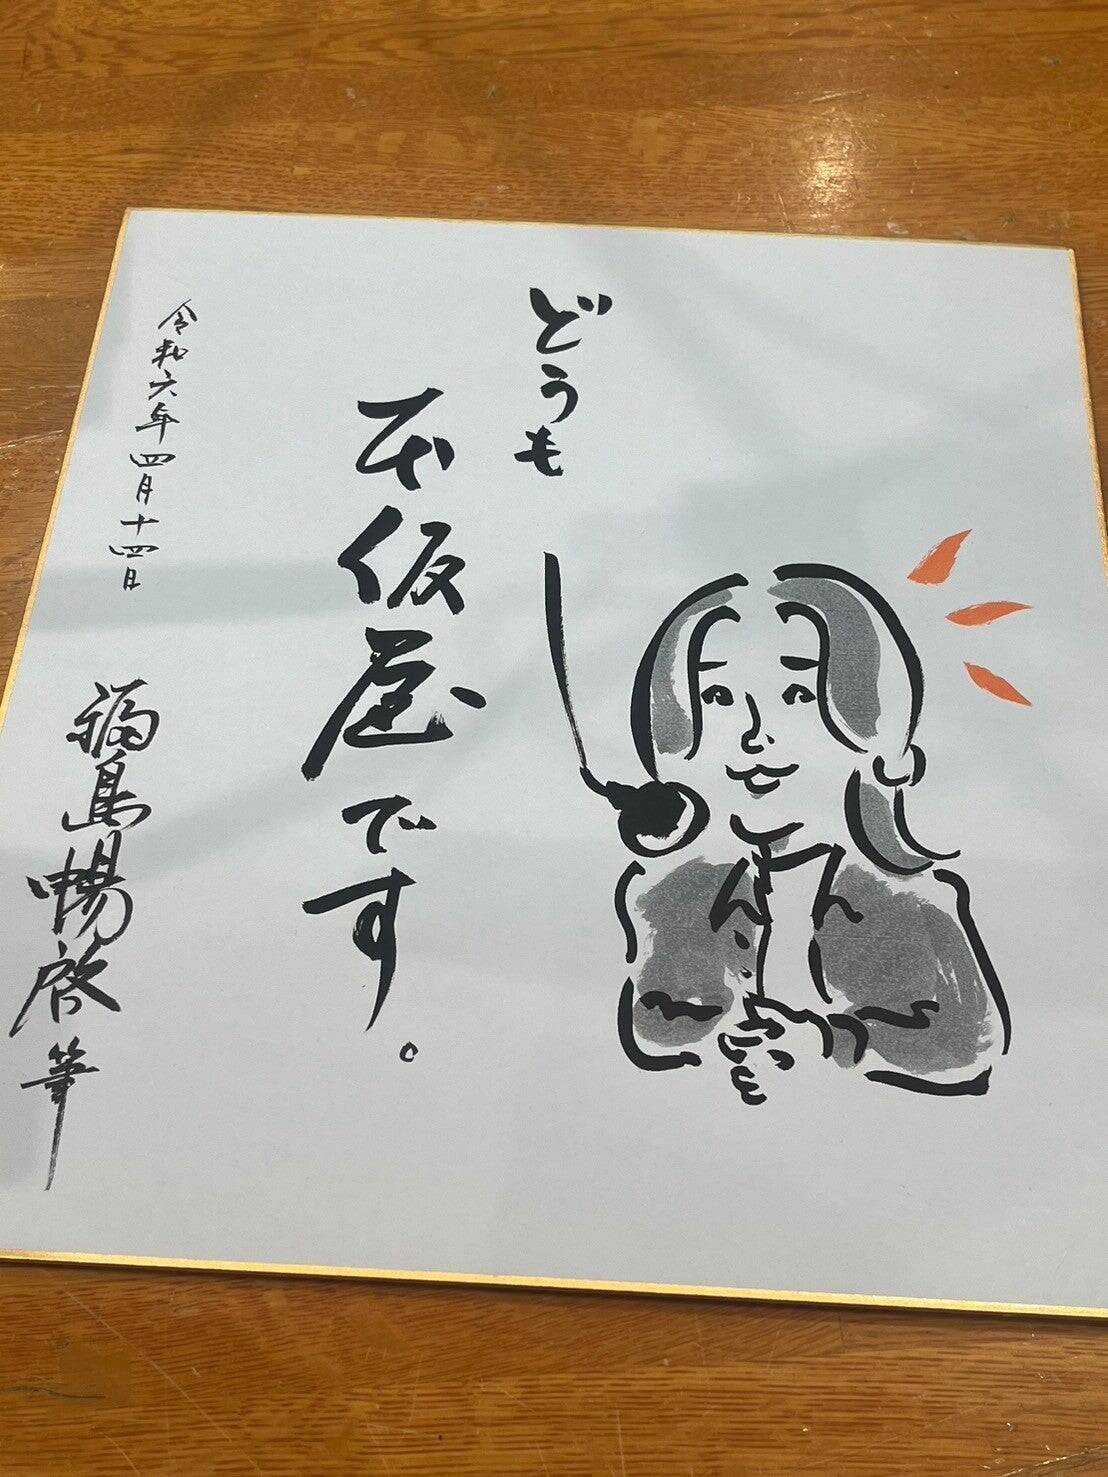 どうも
本仮屋です。
令和六年四月十四日
福島暢啓筆